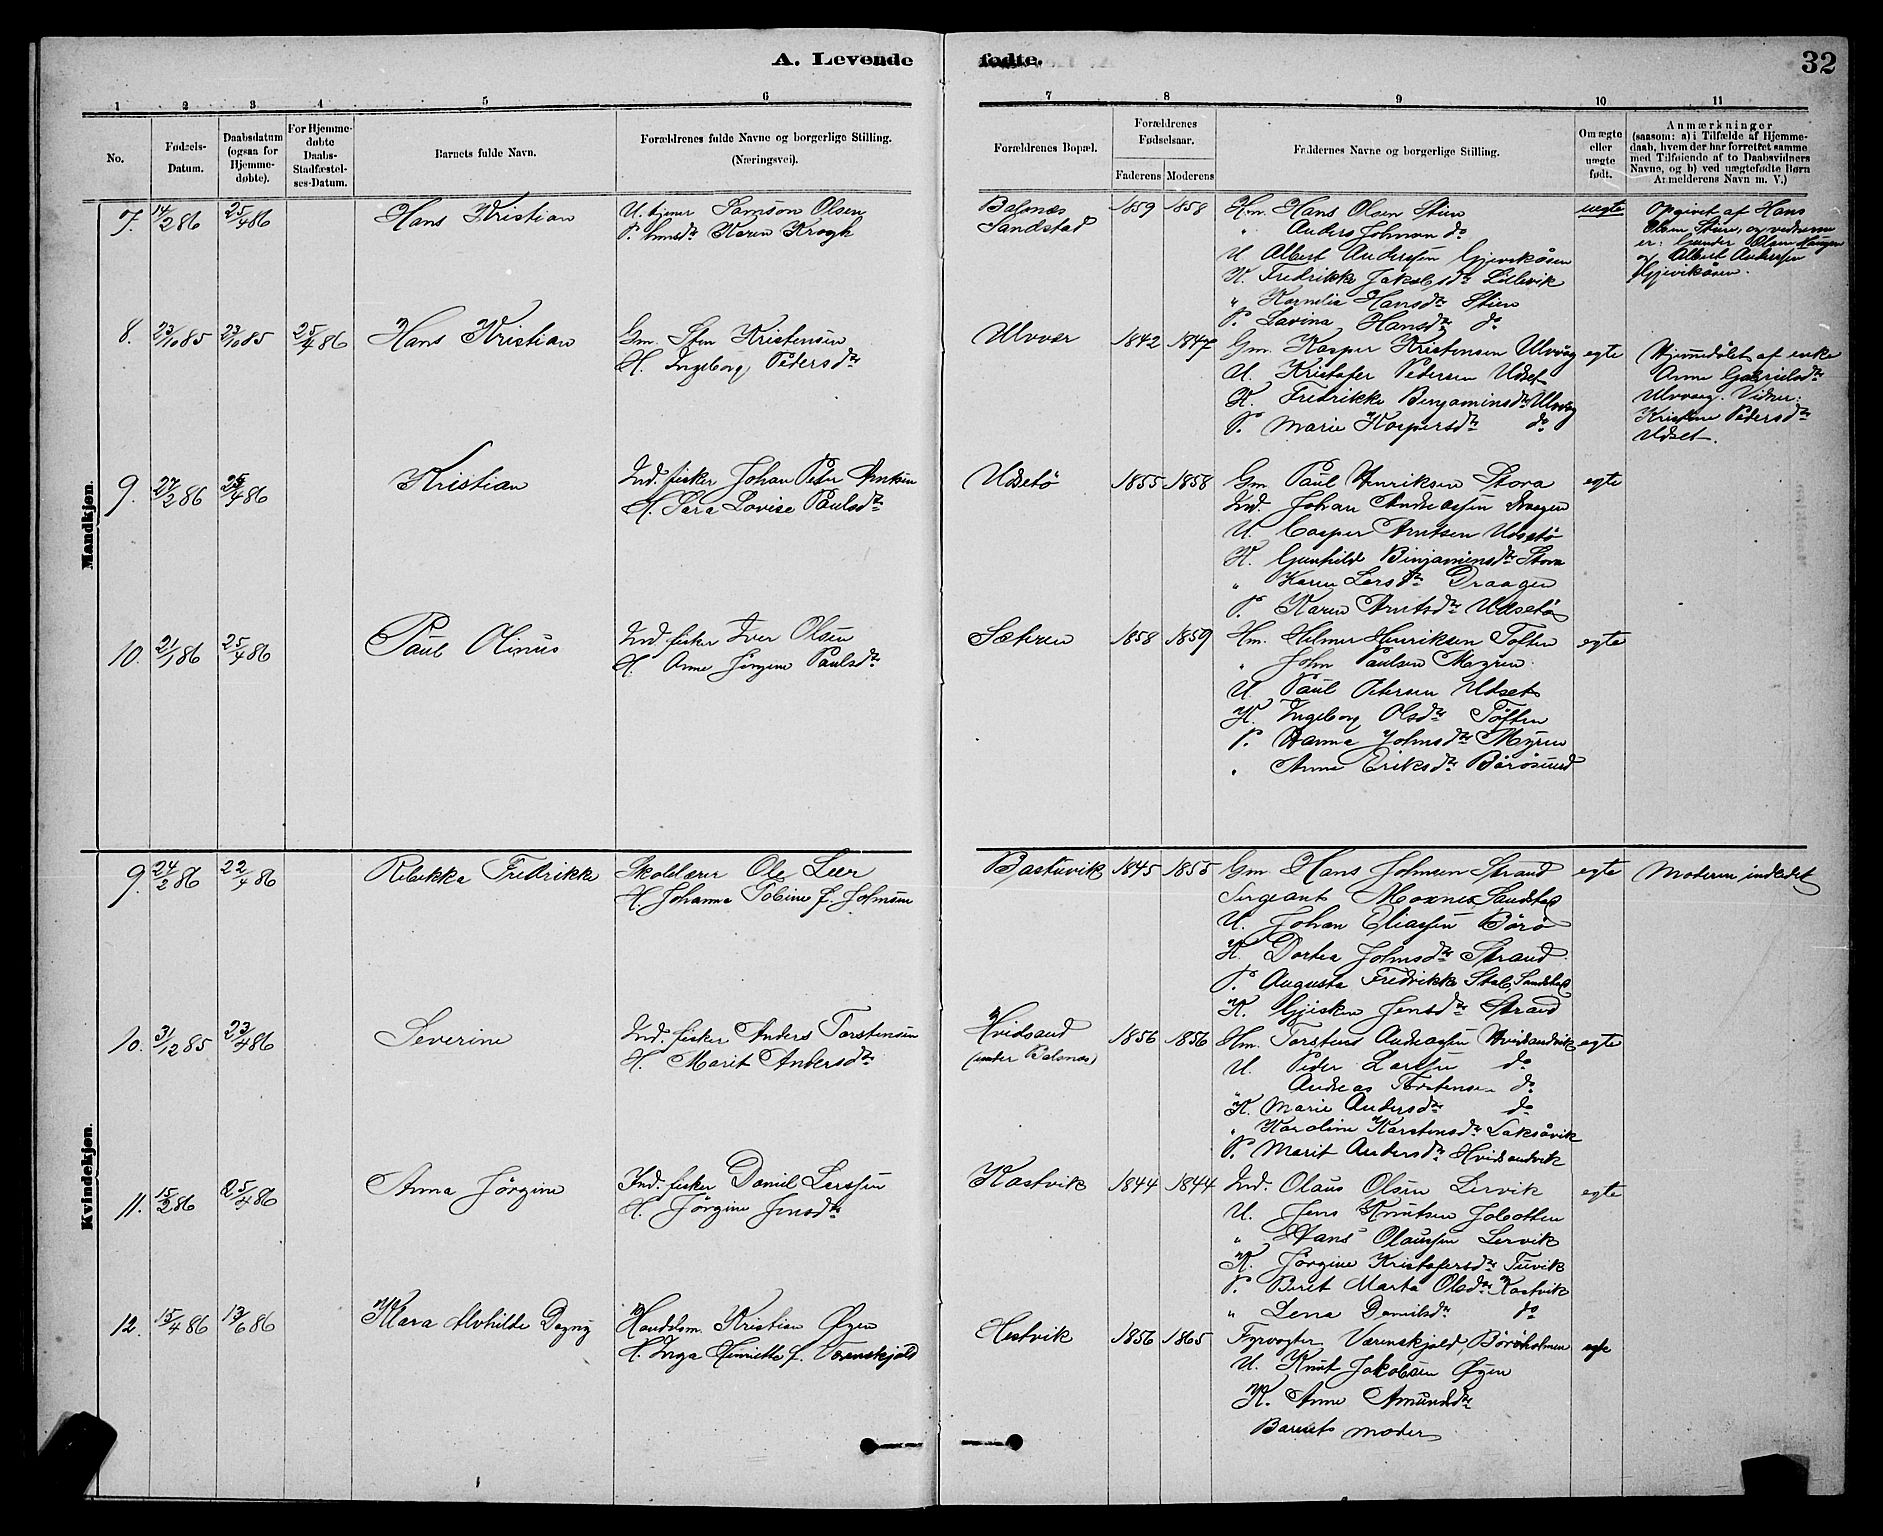 A. Levende fødte.
32
1 2 3 4 5 6 7 8 9 10 11
No.
Fødsels-Datum.
Daabsdatum (ogsaa for Hjemme-døbte).
For Hjemme-døbte Daabs-Stadfæstel-ses-Datum.
Barnets fulde Navn.
Forældrenes fulde Navne og borgerlige Stilling.
(Næringsvei).
Forældrenes Bopæl.
Forældrenes Fødselsaar.
Faderens Moderens
Faddernes Navne og borgerlige Stilling.
Om ægte eller uægte født.
Anmærkninger
(saasom: a) i Tilfælde af Hjemme-
daab, hvem der har forrettet samme
med Tilføiende af to Daabsvidners
Navne, og b) ved uægtefødte Børn
Anmelderens Navn m. V.)
Mandkjøn.
7. 14/2 86 25/4 86 Hans Kristian
U. tjener Samson Olsen
P. Karen Krogh
Balsnæs
Sandstad
1859 1858
Hm. Hans Olsen Stien
" Anders Johnsen do
U. Albert Anderssen Gjevikåsen
K. Fredrikke Jakobsdtr Lillevik
" Kornelia Hansdtr Stien
P. Lavina Hansdtr do
uegte
Opgivet af Hans
Olsen Stien, og vidnerne
er: Gunder Olsen Haugen
og Albert Anderssen
Gjevikåsen.
8. 23/10 85 23/10 85 25/4 86 Hans Kristian
Gm. Sten Kristensen
H. Ingeborg Petersdtr
Ulvvær
1842 1847
Gm. Kasper Kristensen Ulvvåg
U. Kristofer Pedersen Udset
K. Fredrikke Benjaminsdtr Ulvvåg
P. Marie Kaspersdtr do
egte
Hjemmedøbt af enke
Anne Gabrielsdtr
Ulvvåg. Vidner:
Kristine Pedersdtr
Udset.
9. 27/2 86 25/4 86 Kristian
Ind. fisker Johan Peter Arntsen
H. Sara Lovise Paulsdtr
Udsetø
1855 1858
Gm. Paul Henriksen Stora
Ind. Johan Andreassen Draagen
U. Casper Arntsen Udsetø
K. Gunhild Binjaminsdtr Stora
" Karen Larsdtr Draagen
P. Karen Arntsdtr Udsetø
egte
10. 2/1 86 25/4 86 Paul Olinus
Ind. fisker Iver Olsen
H. Anne Jørgine Paulsdtr
Sætren
1858 1859
Hm. Hilmer Henriksen Toften
" John Paulsen Myren
U. Paul Petersen Udset
K. Ingeborg Olsdtr Toften
P. Hanna Johnsdtr Myren
" Anne Eriksdtr Börösund
egte
Kvindekjøn.
9. 24/2 86 22/4 86 Rebekka Fredrikke
Skolelærer Ole Leer
H. Johanna Tobine f. Johnsen
Bastuvik
1845 1855
Gm Hans Johnsen Strand
Sergeant Moxnes Sandstad
U. Johan Eliassen Börö
K. Dortea Johnsdtr Strand
P. Augusta Fredrikke Stab, Sandstad
K. Gjisken Jensdtr Strand
egte
Moderen indledet
10. 31/12 85 23/4 86 Severine
Ind. fisker Anders Torstensen
H. Marit Andersdtr
Hvidsand
(under Balsnæs)
1856 1856
Hm. Torstens Andreassen Hvidsandvik
U. Peder Larsen do
" Andreas Torstensen do
K. Marie Andersdtr do
" Karoline Karstensdtr Laksåvik
P. Marit Andersdtr Hvidsandvik
egte
11. 15/2 86 25/4 86 Anna Jörgine
Ind. fisker Daniel Larssen
H. Jörgine Jensdtr
Kastvik
1844 1844
Ind. Olaus Olsen Lervik
U. Jens Knutsen
" Hans Olaussen Lervik
K. Jörgine Kristofersdtr Tuvik
P. Beret Marta Olsdtr Kastvik
" Lena Danielsdtr do
egte
12. 15/4 86 13/6 86 Klara Alvhilde Dagny
Handelsm. Kristian Øyen
H. Inga Henriette f. Værenskjold
Hestvik
1856 1865
Fyrvogter Værenskjold, Böröholmen
U. Knut Jakobsen Øyen
K. Anne Amundsdtr
Barnets moder
egte